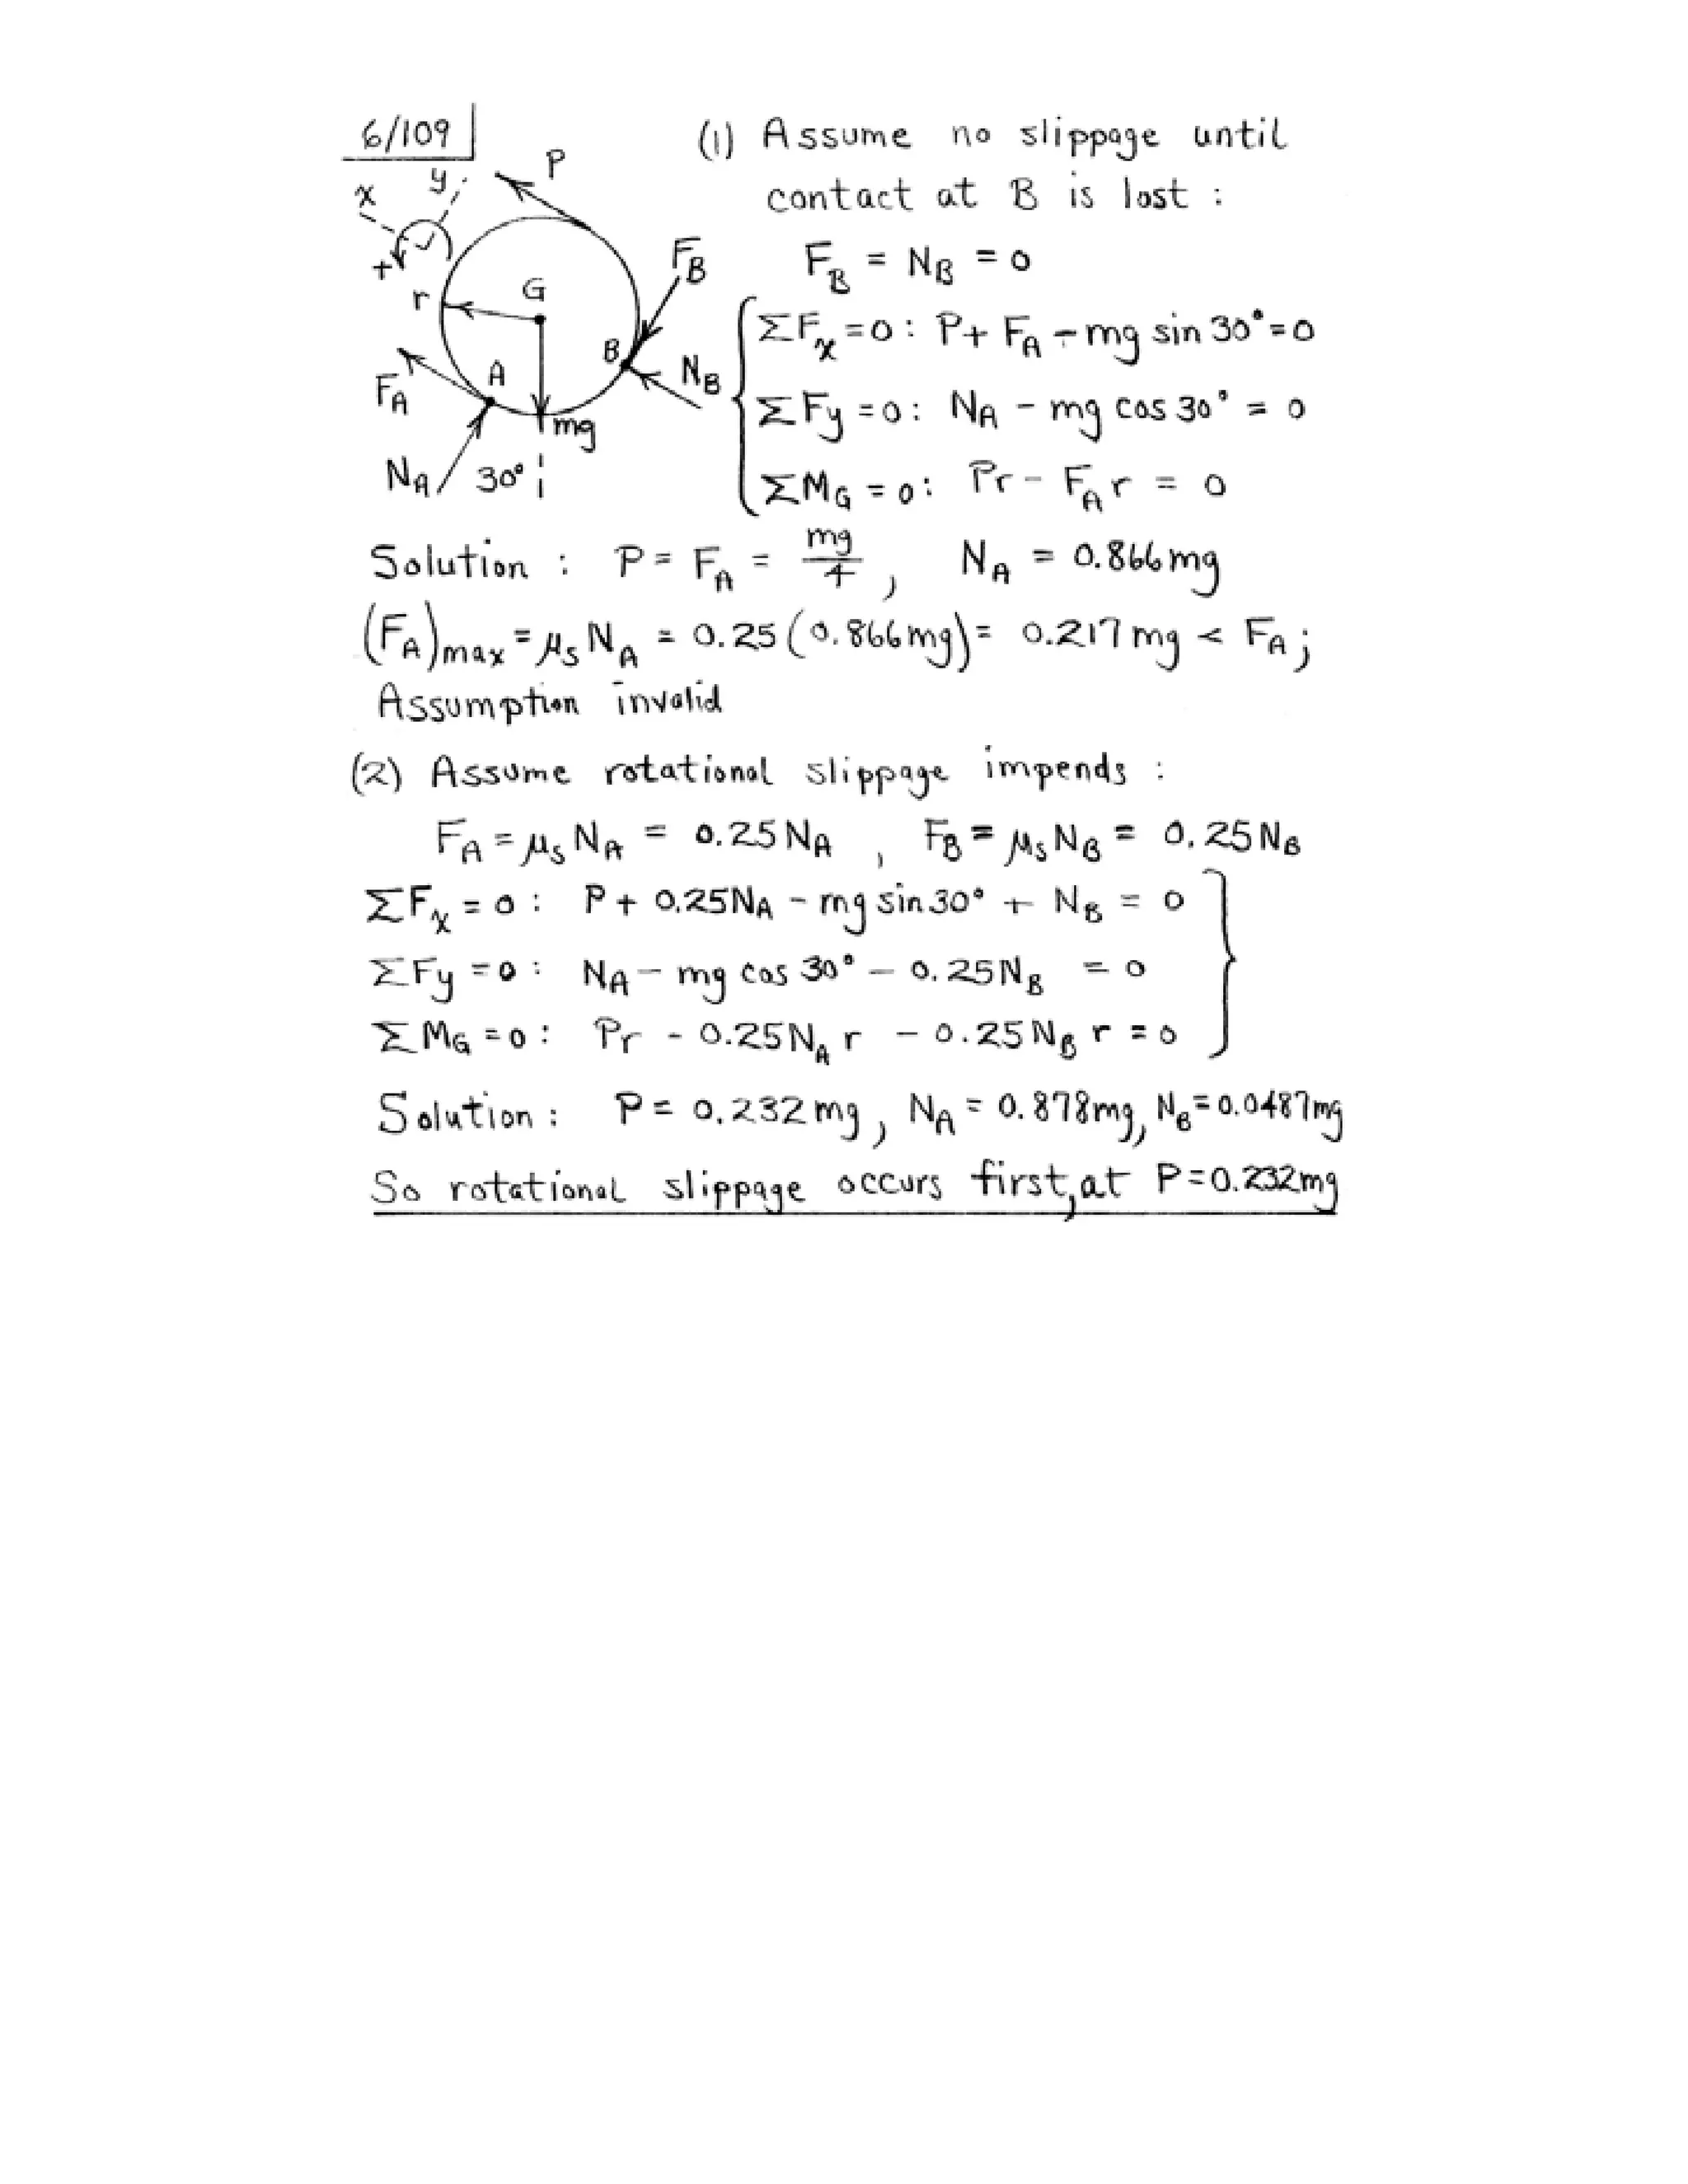 6/109
(1) Assume no slippage until
contact at B is lost :
x y P
+ r G F_B
A B N_B
F_A mg
N_A 30°
F_B = N_B = 0
ΣF_x = 0 : P + F_A - mg sin 30° = 0
ΣF_y = 0 : N_A - mg cos 30° = 0
ΣM_G = 0 : Pr - F_A r = 0
Solution : P = F_A = mg/4 , N_A = 0.866mg
(F_A)_max = μ_s N_A = 0.25 (0.866mg) = 0.217 mg < F_A ;
Assumption invalid
(2) Assume rotational slippage impends :
F_A = μ_s N_A = 0.25 N_A , F_B = μ_s N_B = 0.25 N_B
ΣF_x = 0 : P + 0.25N_A - mg sin 30° + N_B = 0
ΣF_y = 0 : N_A - mg cos 30° - 0.25N_B = 0
ΣM_G = 0 : Pr - 0.25N_A r - 0.25N_B r = 0
Solution : P = 0.232 mg, N_A = 0.878mg, N_B = 0.0487mg
So rotational slippage occurs first, at P = 0.232mg